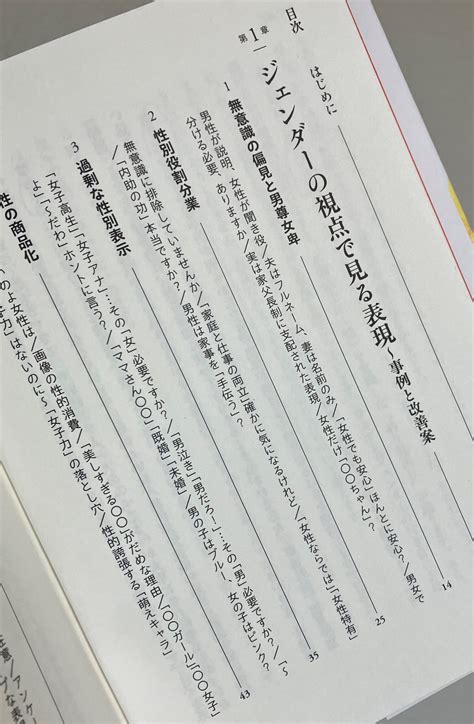 目次
はじめに
第1章 ジェンダーの視点で見る表現〜事例と改善案 14
1 無意識の偏見と男尊女卑 25
男性が説明、女性が聞き役/夫はフルネーム、妻は名前のみ/「女性でも安心」ほんとに安心?/男女で
分ける必要、ありますか/実は家父長制に支配された表現/女性だけ「〇〇ちゃん」?
2 性別役割分業 35
無意識に排除していませんか/「家庭と仕事の両立」確かに気になるけれど/「女性ならでは」「女性特有」
/「内助の功」本当ですか?/男性は家事を「手伝う」?
3 過剰な性別表示 43
「女子高生」「女子アナ」…その「女」必要ですか?/「男泣き」「男だろー」…その「男」必要ですか?/「〜
よ」「〜だわ」ホントに言う?/「ママさん〇〇」「既婚」「未婚」/男の子はブルー、女の子はピンク?
性の商品化
のよ女性は/画像の性的消費/「美しすぎる〇〇」がだめな理由/「〇〇ガール」「〇〇女子」
女子力」はないのに〜「女子力」の落とし穴/性的誇張する「萌えキャラ」